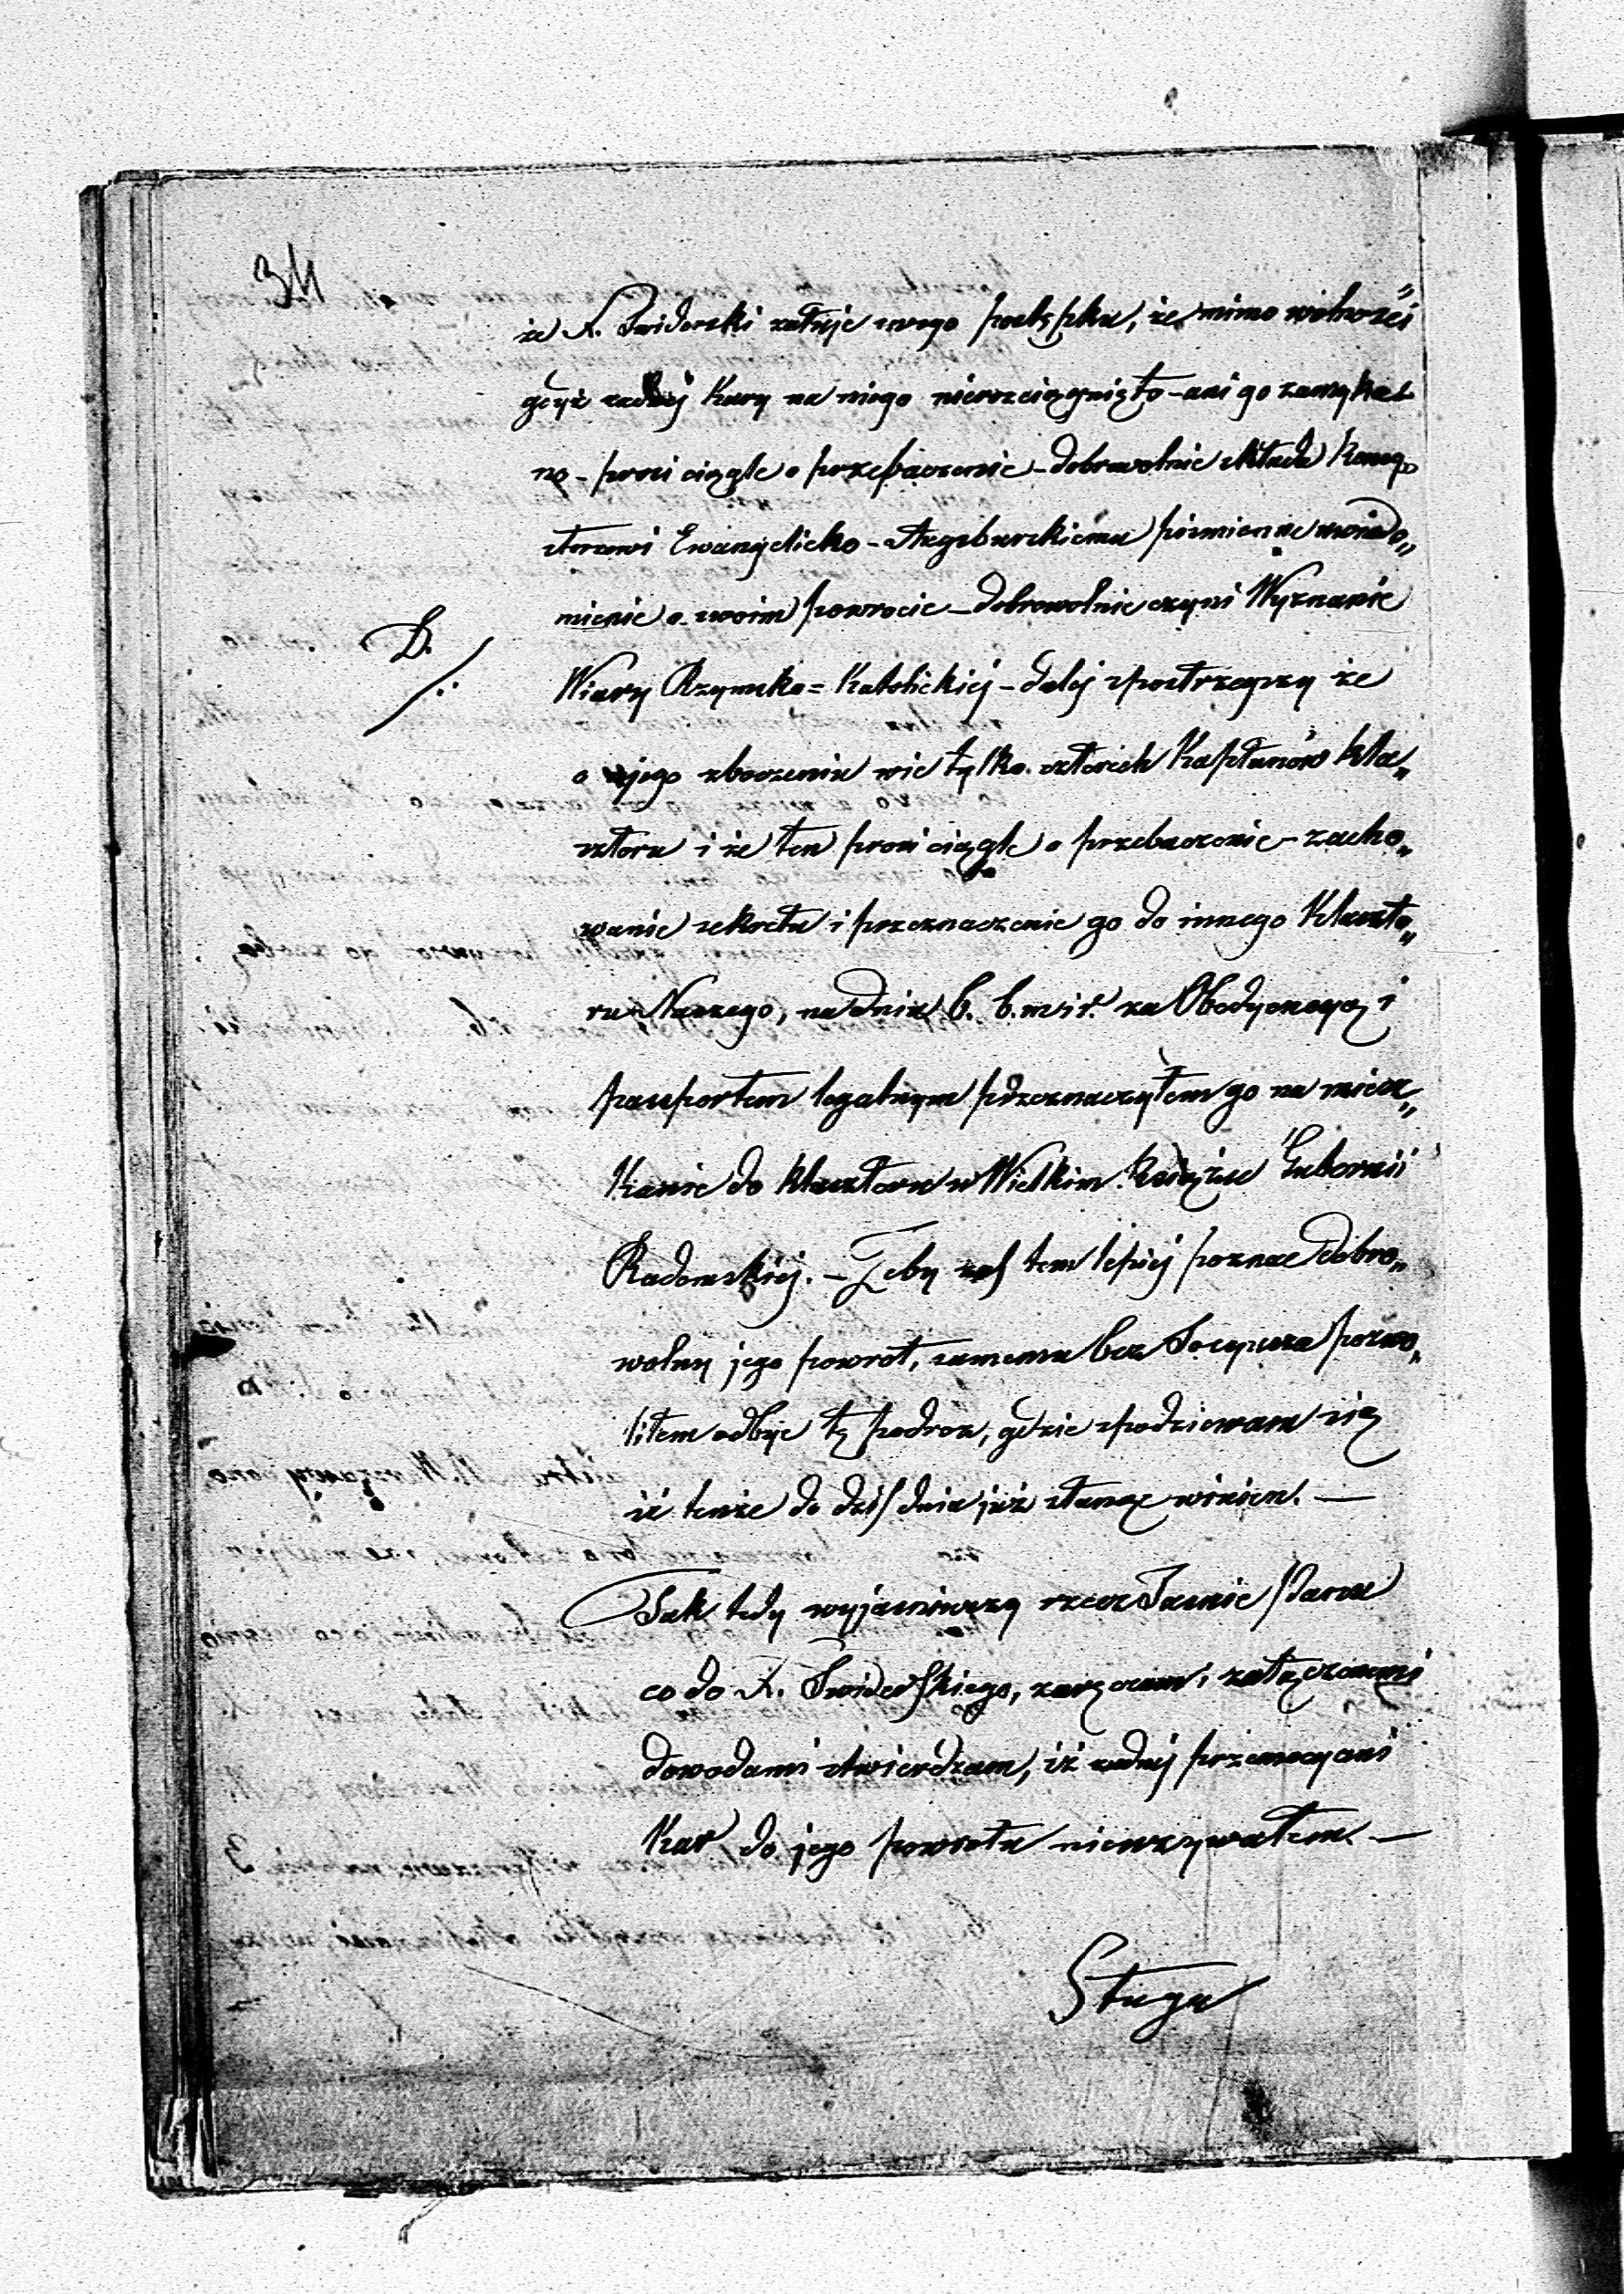 34
że X. Swiderski załuje swego postępku, że mimo wolności
gdyż żadnej Kary na niego nierozciągnięto - ani go zamyka-
no - prosi ciągle o przebaczenie - dobrowolnie składa Konsy-
storzowi Ewangelicko - Augsburskiemu piśmienne uwiado„
mienie o swoim powrocie - dobrowolnie czyni Wyznanie
D.
Wiary Rzymsko = Katolickiej - dalej spostrzegszy że
o jego zboczeniu wie tylko czterech Kapłanów kla„
sztoru i że ten prosi ciągle o przebaczenie - zacho„
wanie sekretu i przeznaczenie go do innego Klaszto„
ru Naszego, na dniu 6. b. m i r. za Obedyencyą i
paszportem legalnym przeznaczyłem go na miesz„
kanie do klasztoru w Wielkim Gubernii
Radomskiej. - Żeby zaś tem lepiej poznać dobro„
wolny jego powrot, samemu bez Socyusza pozwo„
liłem odbyć tę podroż, gdzie spodziewam się
iż tenże do dziś dnia już stanąć winien. —
Tak tedy wyjaśniwszy rzecz Jasnie Panu
co do X. Swiderskiego, zaręczam i załączonemi
dowodami stwierdzam, iż żadnej przemocy ani
Kar do jego powrotu nieużywałem. —
Sługa